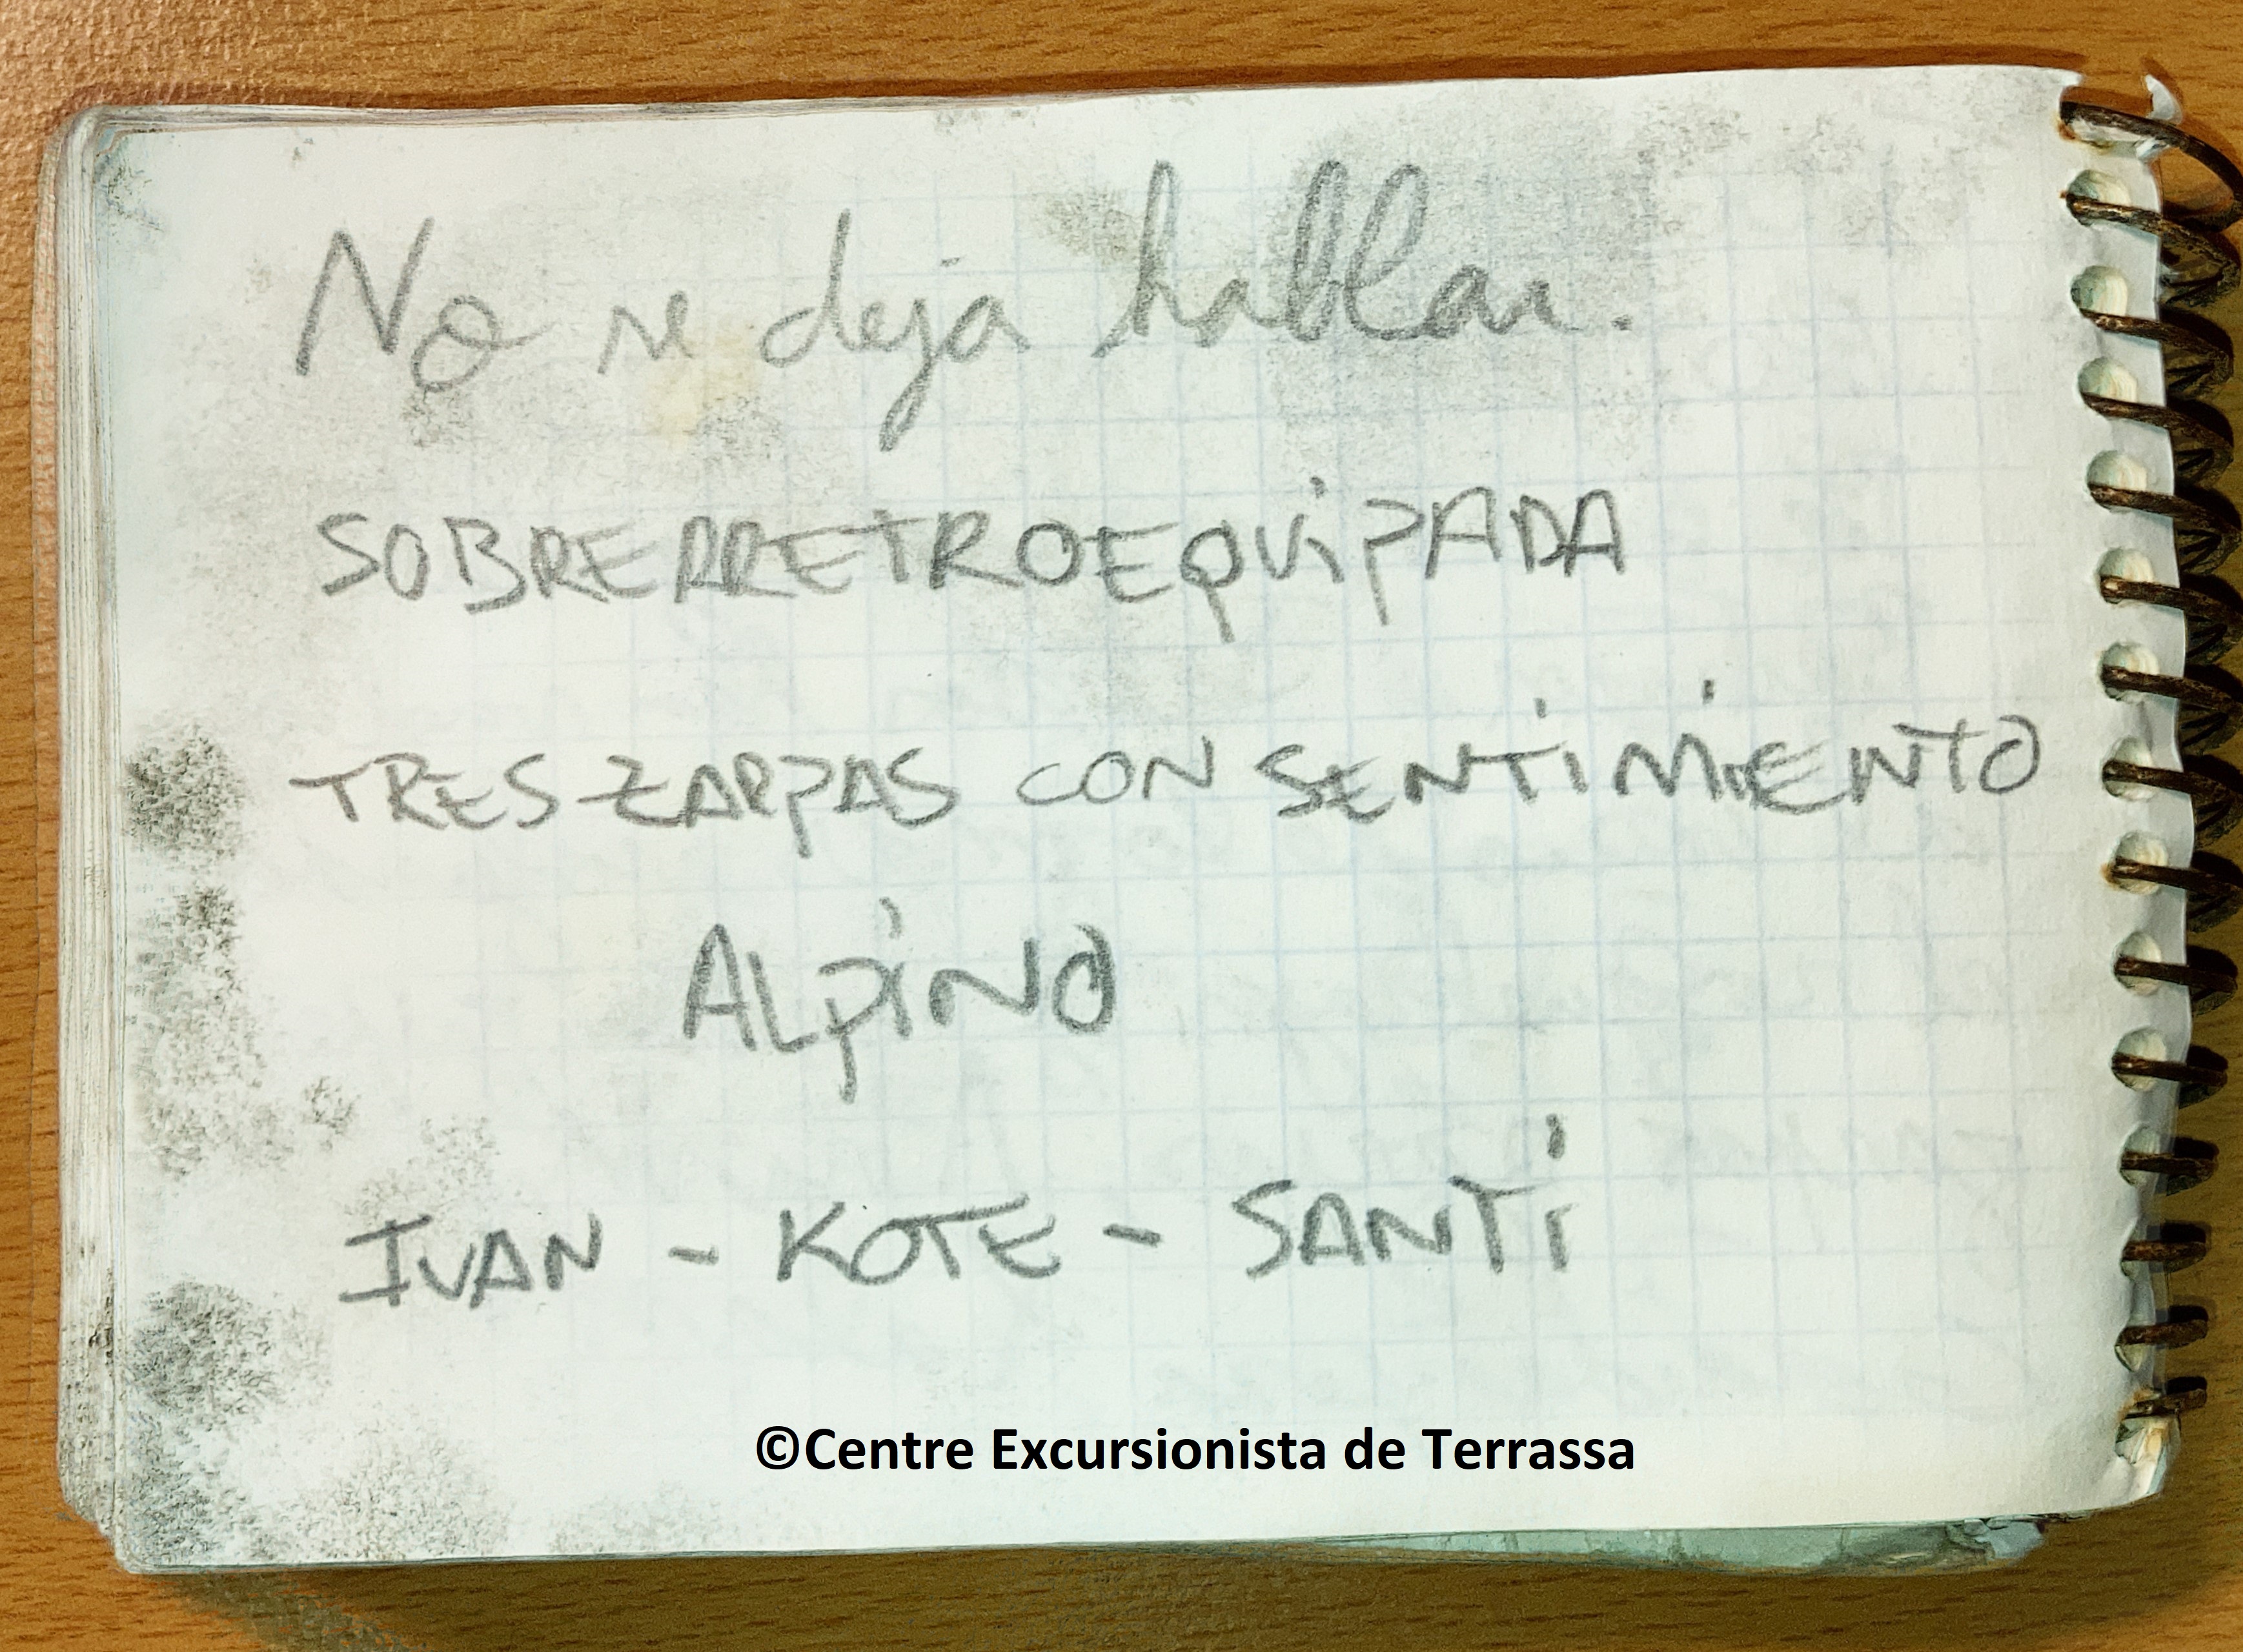 No se deja hablar.
SOBRERRETROEQUIPADA
TRES ZARPAS CON SENTIMIENTO
ALPINO
IVAN - KOTE - SANTI
©Centre Excursionista de Terrassa